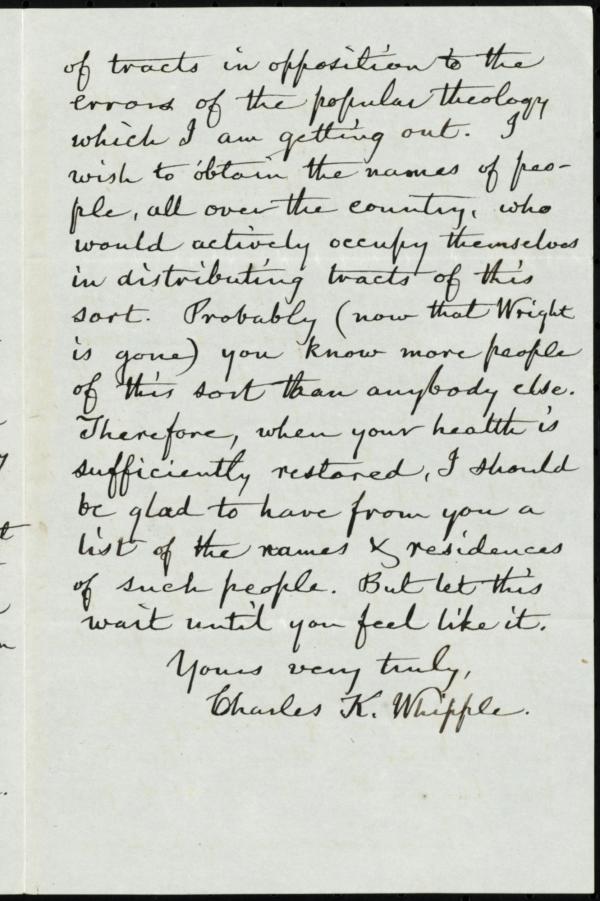 of tracts in opposition to the
errors of the popular theology
which I am getting out. I
wish to obtain the names of peo-
ple, all over the country, who
would actively occupy themselves
in distributing tracts of this
sort. Probably (now that Wright
is gone) you know more people
of this sort than anybody else.
Therefore, when your health is
sufficiently restored, I should
be glad to have from you a
list of the names & residences
of such people. But let this
wait until you feel like it.
Yours very truly,
Charles K. Whipple.